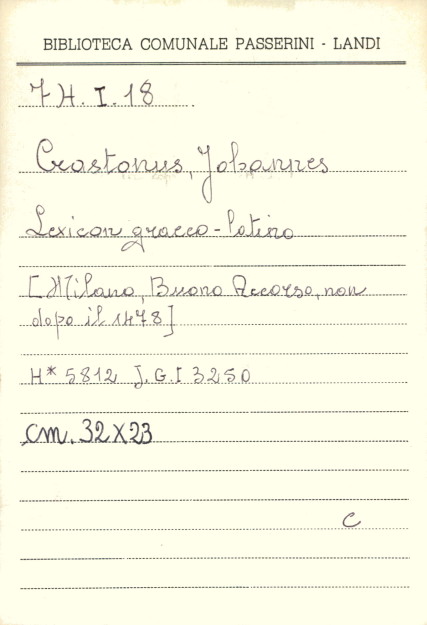 BIBLIOTECA COMUNALE PASSERINI - LANDI
7 H. I. 18
Crastonus, Johannes
Lexicon graeco-latino
[Milano, Buono Accorso, non
dopo il 1478]
H* 5812 J.G.I 3250
cm. 32X23
C